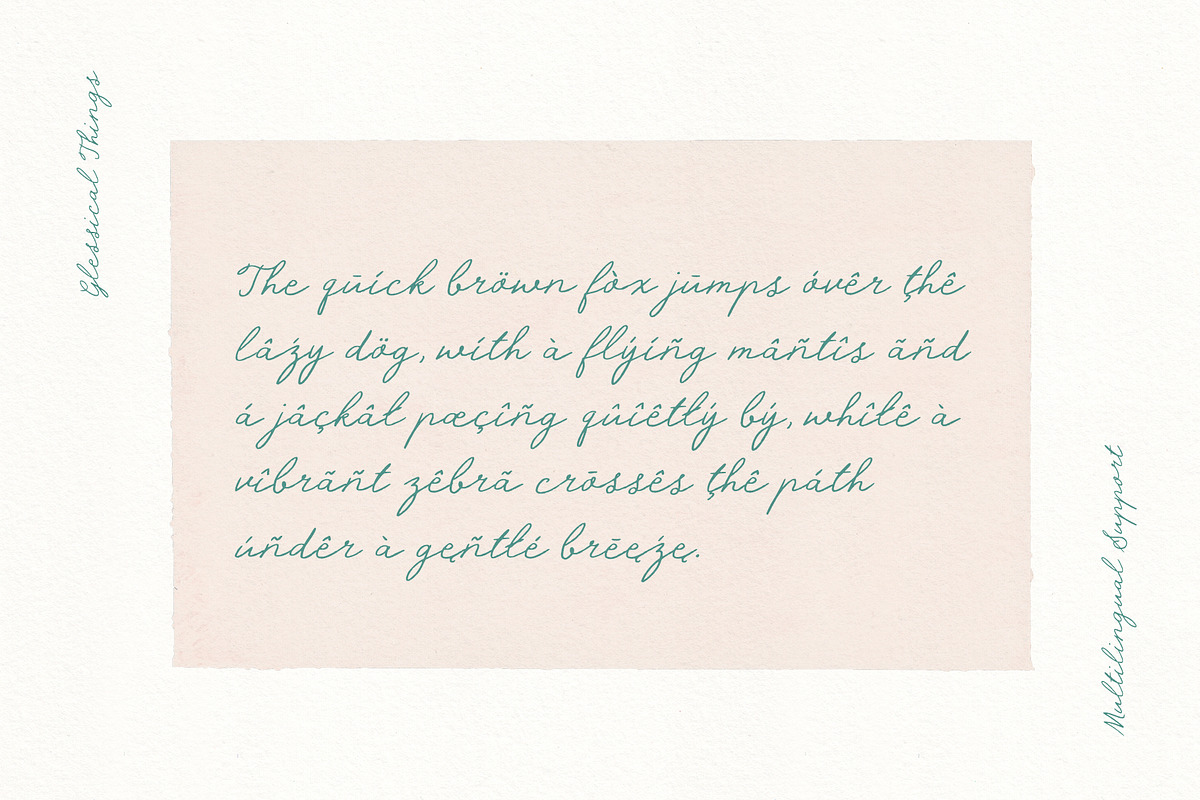 Glessical Things
The qūíck bröwn fòx jūmps óvêr ţhê
lâźy dög, wíth à flýíñg mâñtîs ãñd
á jâçkâł pæçîñg qûîêtłý bý, whîłê à
vîbrãñt zêbrã crōssês ţhê páth
úñdêr à gęñtłé brēęźę.
Multilingual Support